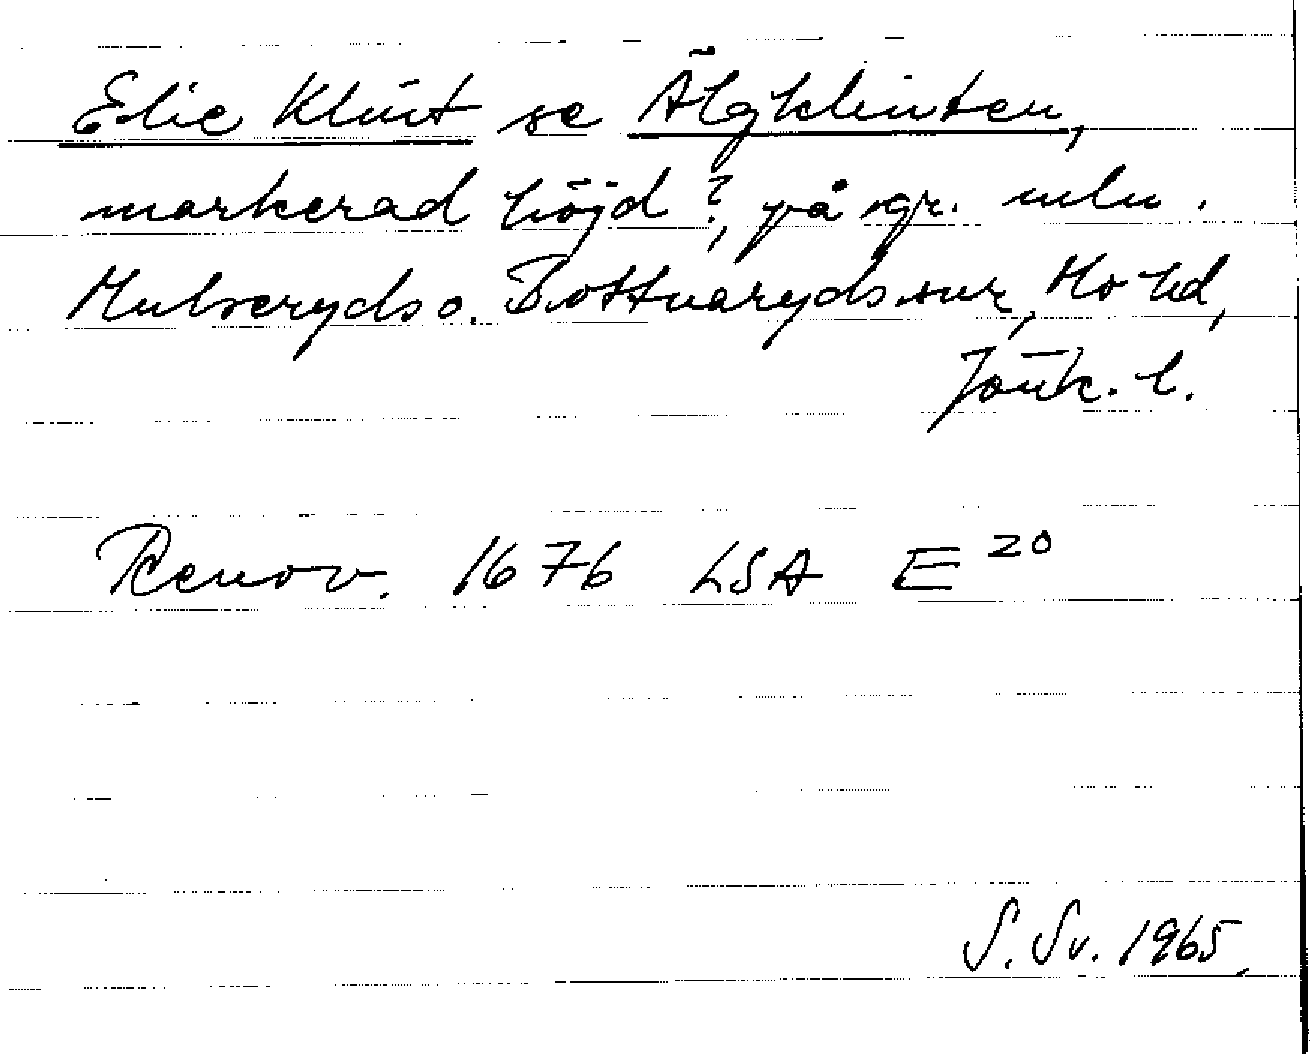 Elie Klint se Älgklinten,
markerad höjd?, på gr. mln.
Mulseryds o. Bottnaryds snr, Mo hd,
Jönk. l.
Renov. 1676 LSA E 20
S. Sv. 1965.